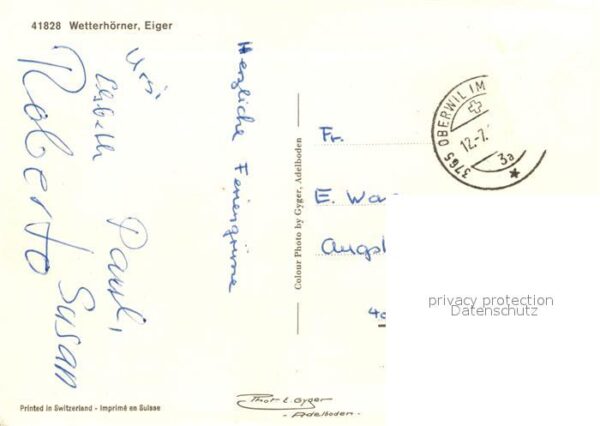 41828 Wetterhörner, Eiger
Herzliche Feriengrüsse
Ursi
Elsbeth
Roberto
Paul,
Susan
Colour Photo by Gyger, Adelboden
3765 OBERWIL IM
12.-7.
3a
Fr.
E. Wa
Augst
40
privacy protection
Datenschutz
Phot E. Gyger
- Adelboden -
Printed in Switzerland - Imprimé en Suisse